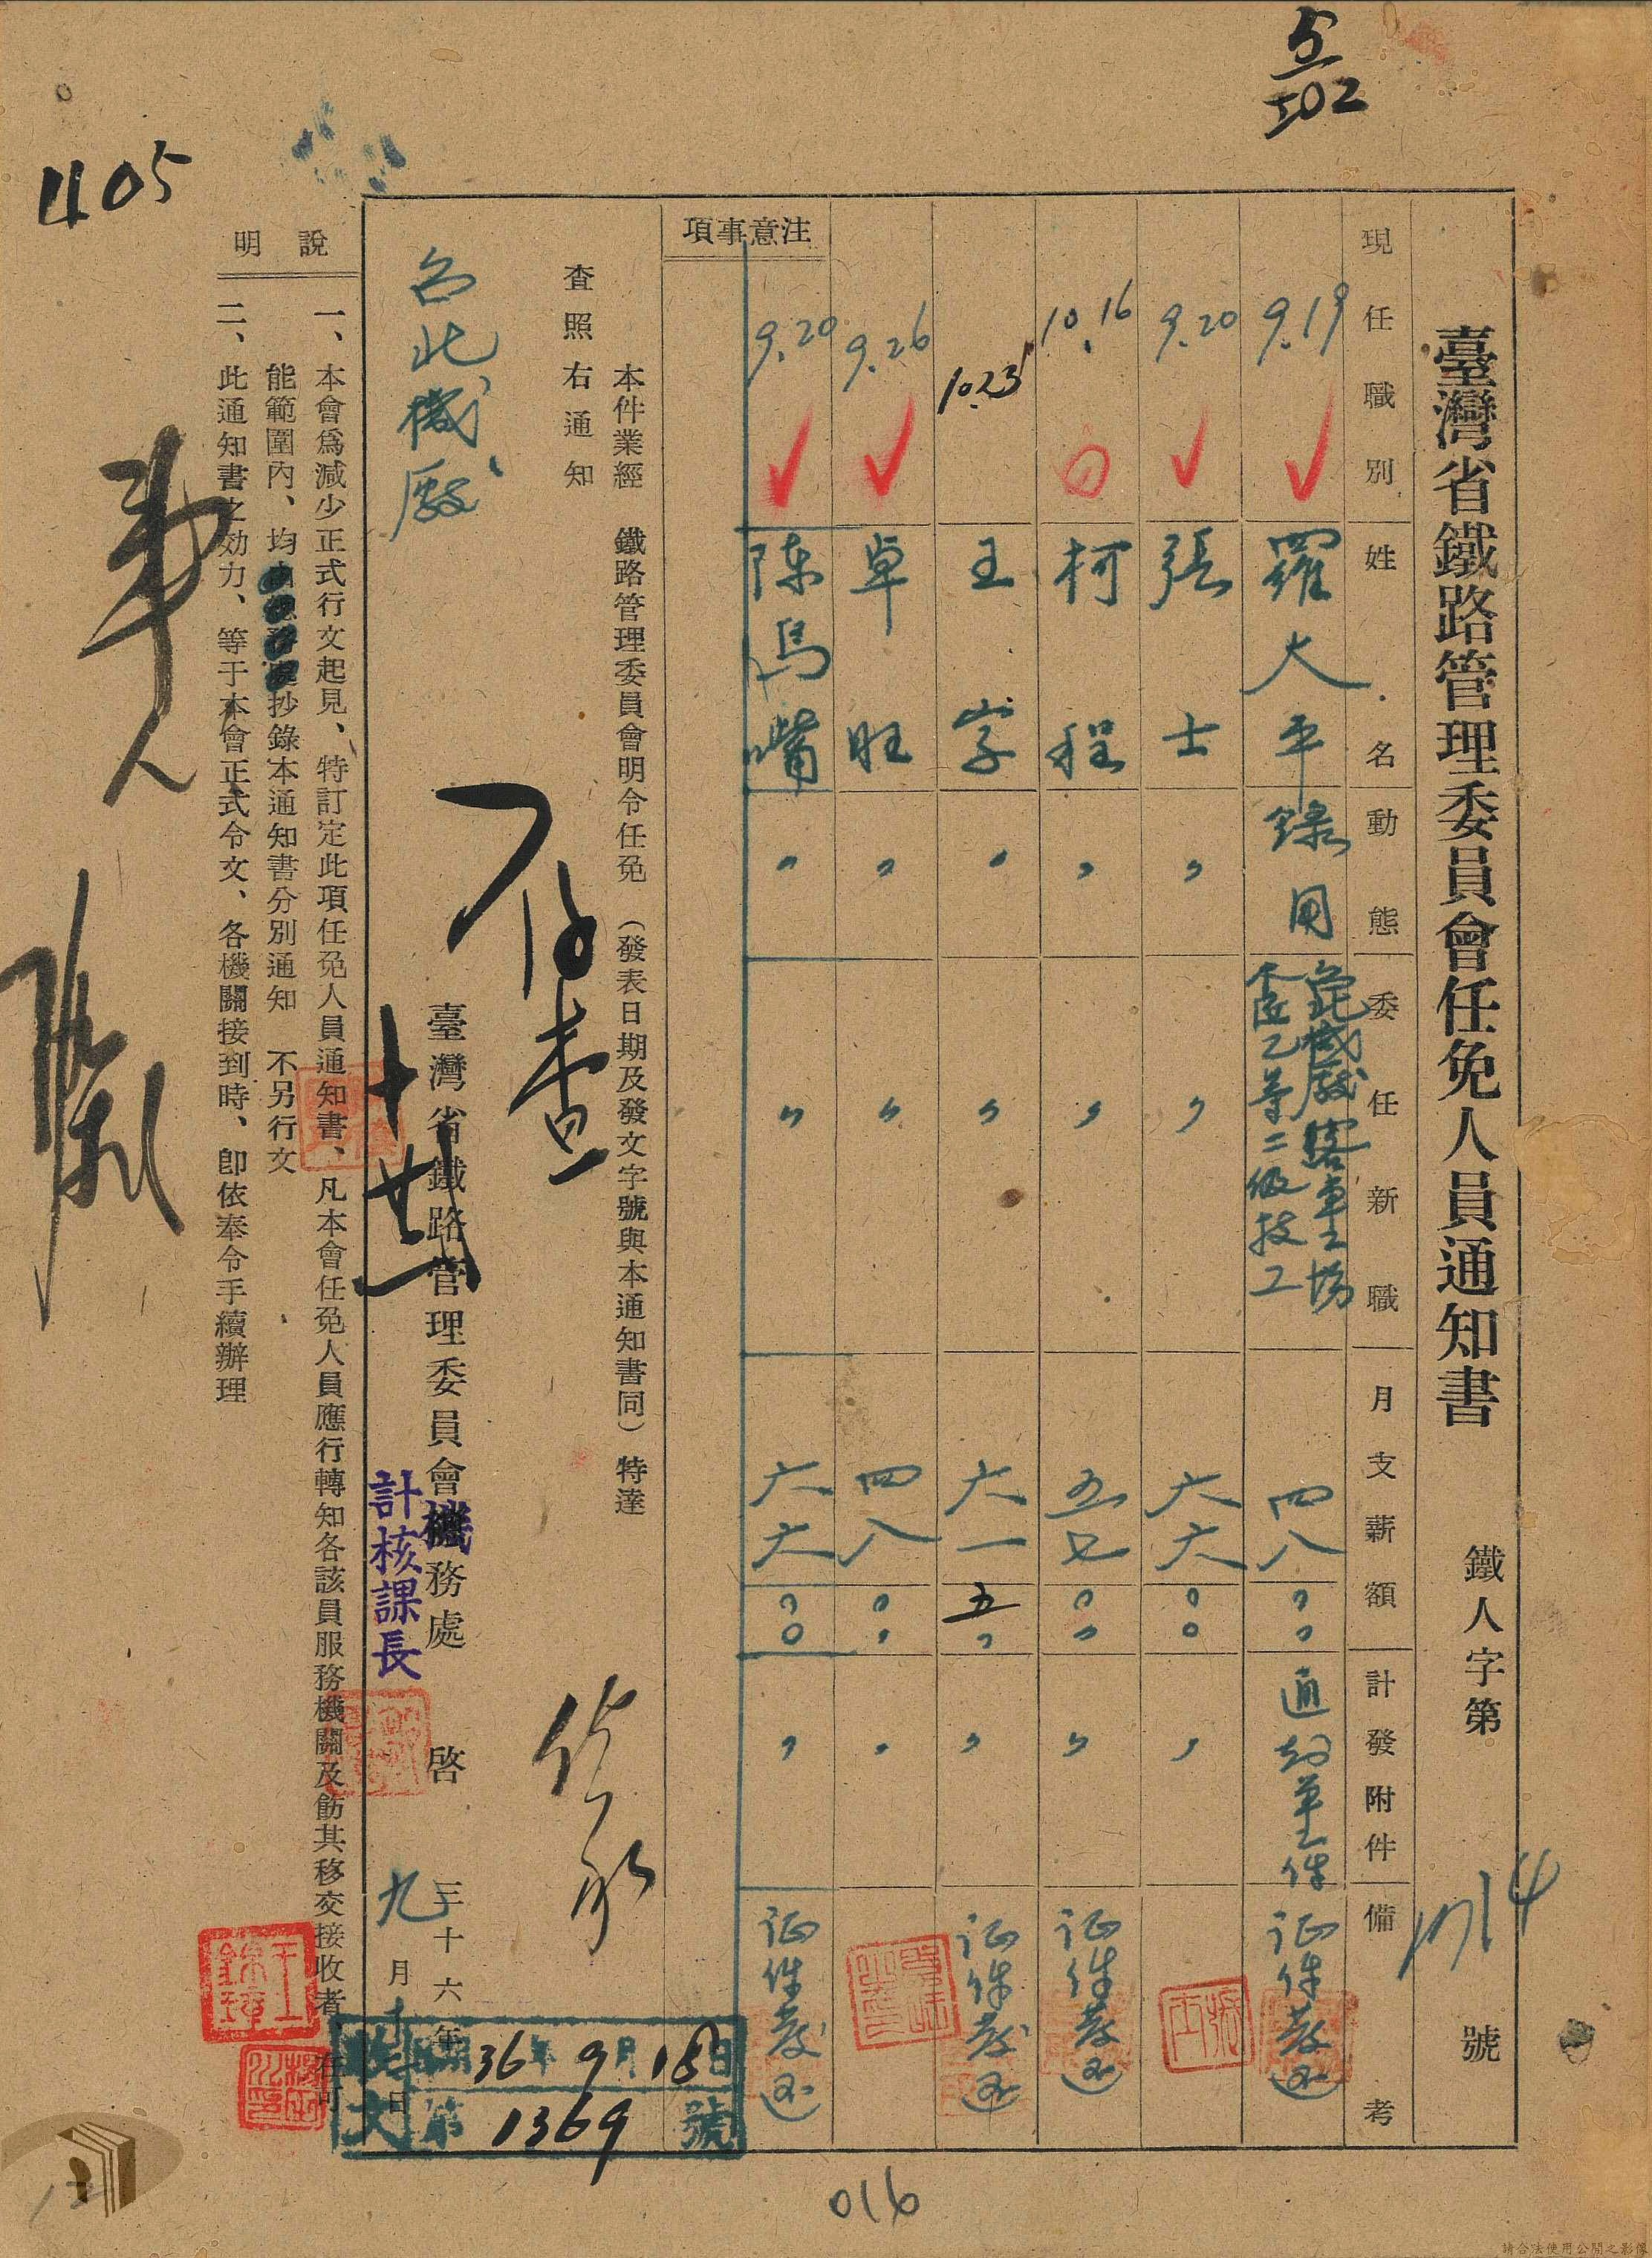 臺灣省鐵路管理委員會任免人員通知書
鐵人字第 1714 號
現任職別 姓名 動態 委任新職 月支薪額 計發附件 備考
9.19 羅大平 錄用 北機厰客車工場 乙等二級技工 四八 通知單一件 証件發还
9.20 張士 〃 〃 六六 〃
10.16 柯程 〃 〃 〃 証件發还
10.23 王字 〃 〃 六一五 〃 証件發还
9.26 卓旺 〃 〃 四八 〃
9.20 陳馬嘴 〃 〃 六六 〃 証件發还
注意事項
本件業經 鐵路管理委員會明令任免 (發表日期及發文字號與本通知書同) 特達
查照右通知
台北機厰
臺灣省鐵路管理委員會機務處 啓
計核課長
三十六年九月十 日
存查
收文 36年9月18日
第1369號
說明
一、本會爲減少正式行文起見、特訂定此項任免人員通知書、凡本會任免人員應行轉知各該員服務機關及飭其移交接收者、在可
能範圍內、均由總務處抄錄本通知書分別通知 不另行文
二、此通知書之効力、等于本會正式令文、各機關接到時、卽依奉令手續辦理
405
5
502
016
請合法使用公開之影像